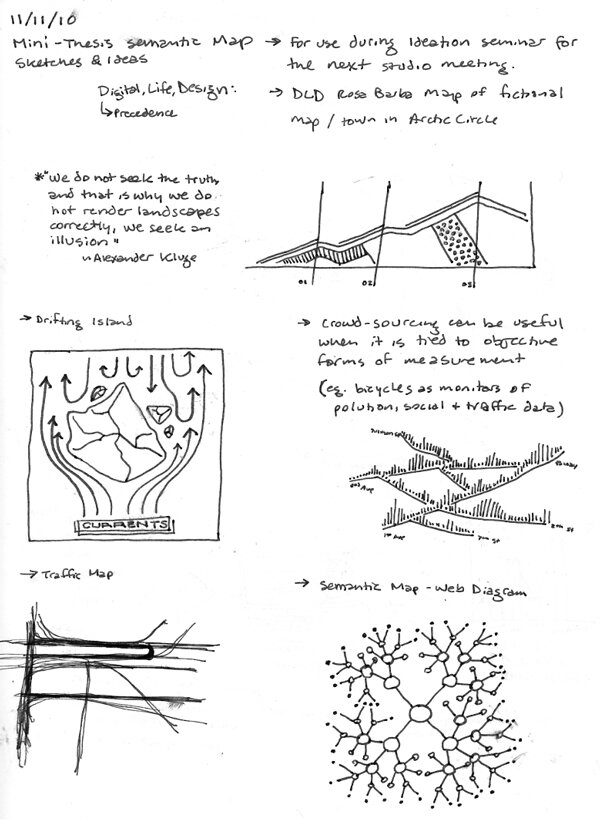 11/11/10
Mini-Thesis semantic Map
sketches & ideas
→ For use during Ideation seminar for
the next studio meeting.
Digital, Life, Design:
↳ Precedence
→ DLD Rosa Barba Map of fictional
map / town in Arctic Circle
*"We do not seek the truth,
and that is why we do
not render landscapes
correctly, we seek an
illusion"
~Alexander Kluge
01 02 03
→ Drifting Island
CURRENTS
→ Crowd-sourcing can be useful
when it is tied to objective
forms of measurement
(eg. bicycles as monitors of
polution, social + traffic data)
1st Ave
→ Traffic Map
→ Semantic Map - Web Diagram